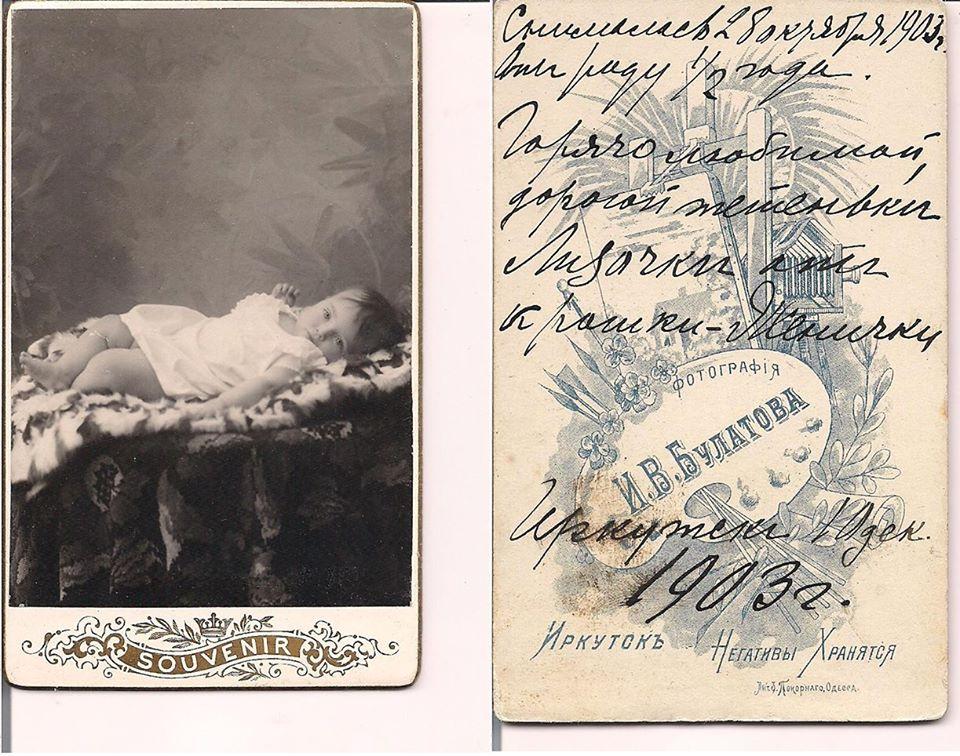 SOUVENIR
Снималась 28 октября 1903 г.
1/2 года.
Горячо любимой,
дорогой тетеньки
Лидочки отъ
крошки-Женички
ФОТОГРАФІЯ
И.В.БУЛАТОВА
Иркутскъ
1903 г.
ИРКУТСКЪ
НЕГАТИВЫ ХРАНЯТСЯ
Лит. Покорнаго, Одесса.